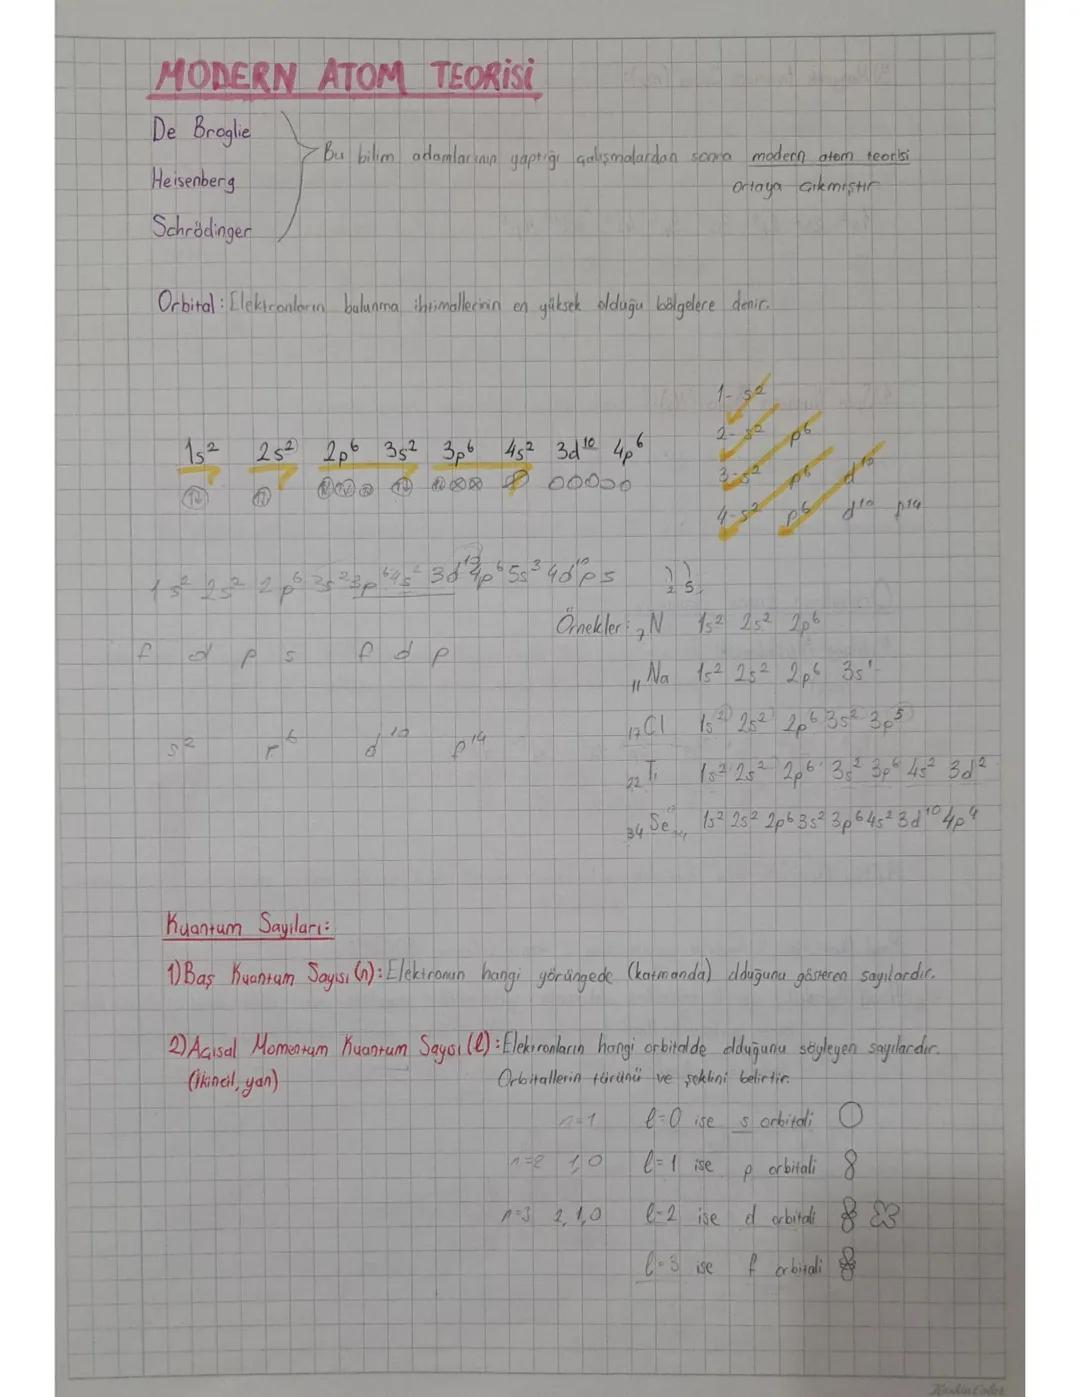 MODERN ATOM TEORİSİ
De Broglie
Heisenberg
Schrödinger
Bu bilim adamlarının yaptığı çalışmalardan sonra modern atom teorisi
ortaya çıkmıştır
Orbital: Elektronların bulunma ihtimallerinin en yüksek olduğu bölgelere denir.
1s² 2s² 2p⁶ 3s² 3p⁶ 4s² 3d¹⁰ 4p⁶
1- s²
2- s² p⁶
3- s² p⁶ d¹⁰
4- s² p⁶ d¹⁰ f¹⁴
1s² 2s² 2p⁶ 3s² 3p⁶ 4s² 3d¹⁰ 4p⁶ 5s³ 4d¹⁰ p s
2 5
f d p s f d p
s² p⁶ d¹⁰ f¹⁴
Örnekler: ₇N 1s² 2s² 2p⁶
₁₁Na 1s² 2s² 2p⁶ 3s¹
₁₇Cl 1s² 2s² 2p⁶ 3s² 3p⁵
₂₂Ti 1s² 2s² 2p⁶ 3s² 3p⁶ 4s² 3d²
₃₄Se 1s² 2s² 2p⁶ 3s² 3p⁶ 4s² 3d¹⁰ 4p⁴
Kuantum Sayıları:
1) Baş Kuantum Sayısı (n): Elektronun hangi yörüngede (katmanda) olduğunu gösteren sayılardır.
2) Açısal Momentum Kuantum Sayısı (ℓ): Elektronların hangi orbitalde olduğunu söyleyen sayılardır.
(İkincil, yan) Orbitallerin türünü ve şeklini belirtir.
n=1 ℓ=0 ise s orbitali
n=2 1,0 ℓ=1 ise p orbitali
n=3 2,1,0 ℓ=2 ise d orbitali
ℓ=3 ise f orbitali